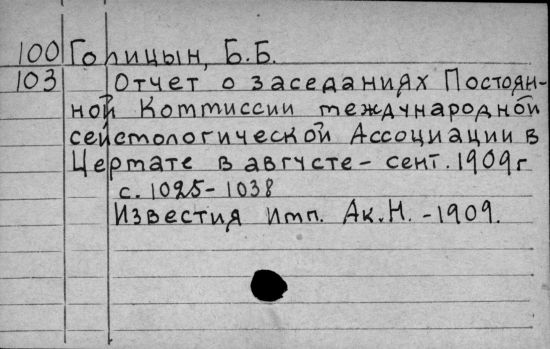 100 Голицын, Б.Б.
103 Отчет о заседаниях Постоян-
ной Коммиссии международной
сейсмологической Ассоциации в
Цермате в августе - сент. 1909г
с. 1025-1038
Известия Имп. Ак. Н. - 1909.